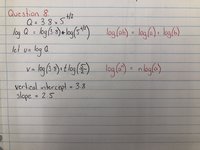 Question 8
Q = 3.8 × 5^(t/2)
log Q = log(3.8) + log(5^(t/2)) log(ab) = log(a) + log(b)
let v = log Q
v = log(3.8) + t log( ) log(a^n) = n log(a)
vertical intercept = 3.8
slope = 2.5